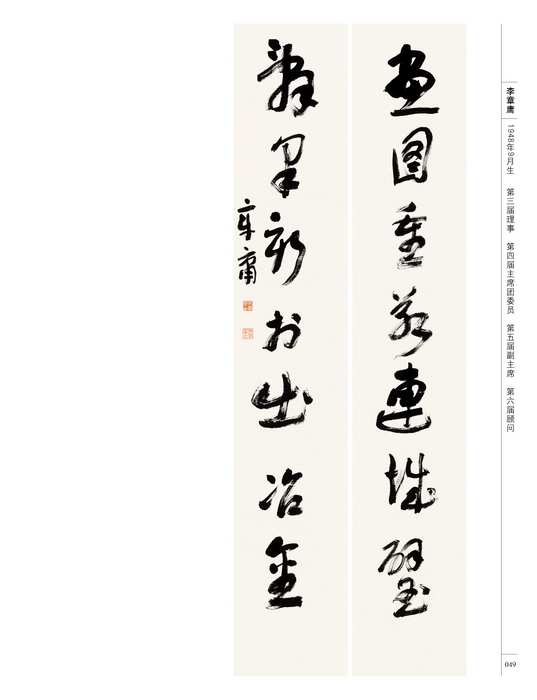 李章庸 1948年9月生 第三届理事 第四届主席团委员 第五届副主席 第六届顾问
畫圖重若連城璧
新於出冶金
章庸
049